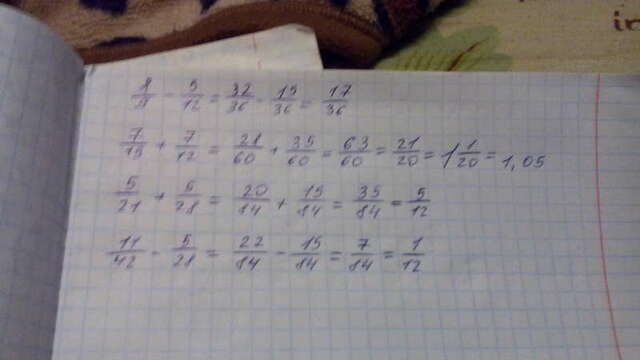 8/9 - 5/12 = 32/36 - 15/36 = 17/36
7/15 + 7/12 = 28/60 + 35/60 = 63/60 = 21/20 = 1 1/20 = 1,05
5/21 + 5/28 = 20/84 + 15/84 = 35/84 = 5/12
11/42 - 5/28 = 22/84 - 15/84 = 7/84 = 1/12